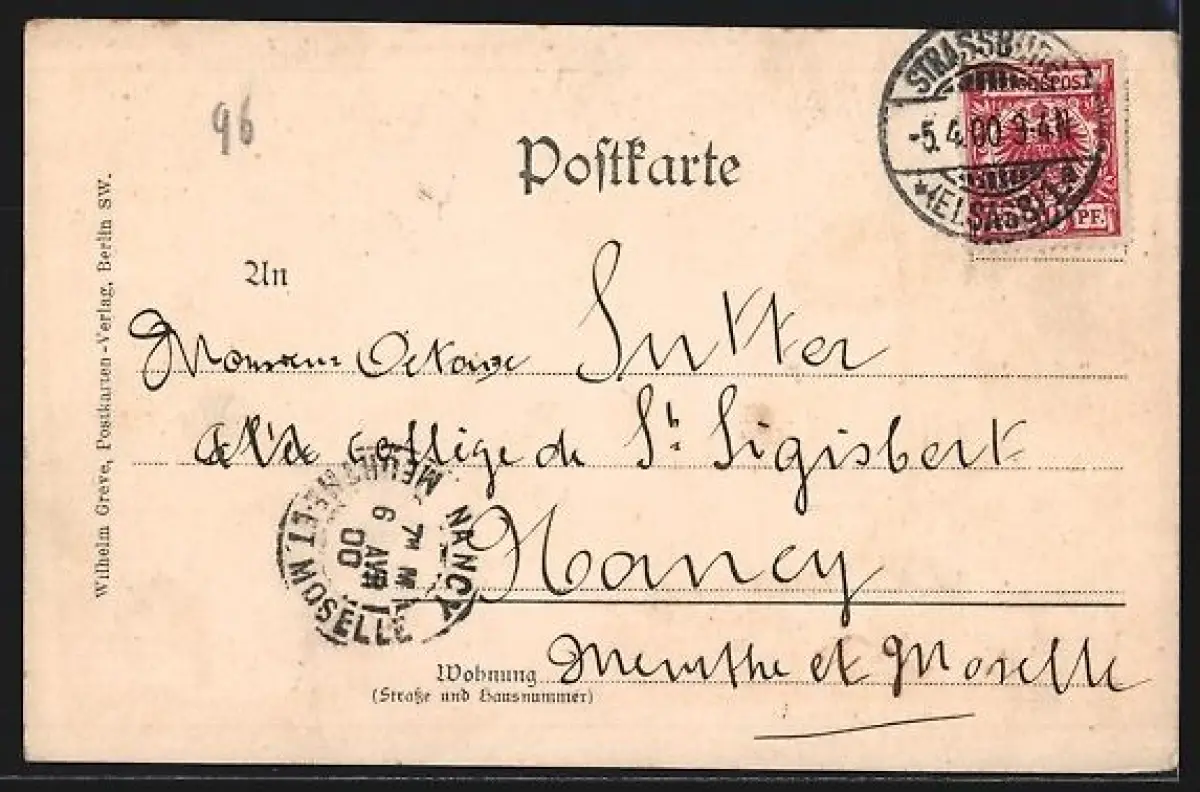 96
Postkarte
STRASSBURG
-5.4.00 3-4N
*(ELSASS)1.a
REICHSPOST
PF.
Wilhelm Greve, Postkarten-Verlag, Berlin SW.
An
Monsieur Octave Sutter
collège de St Sigisbert
Nancy
NANCY
7M M
6 AVR
00
MEURTHE-ET-MOSELLE
Wohnung Meurthe et Moselle
(Straße und Hausnummer)